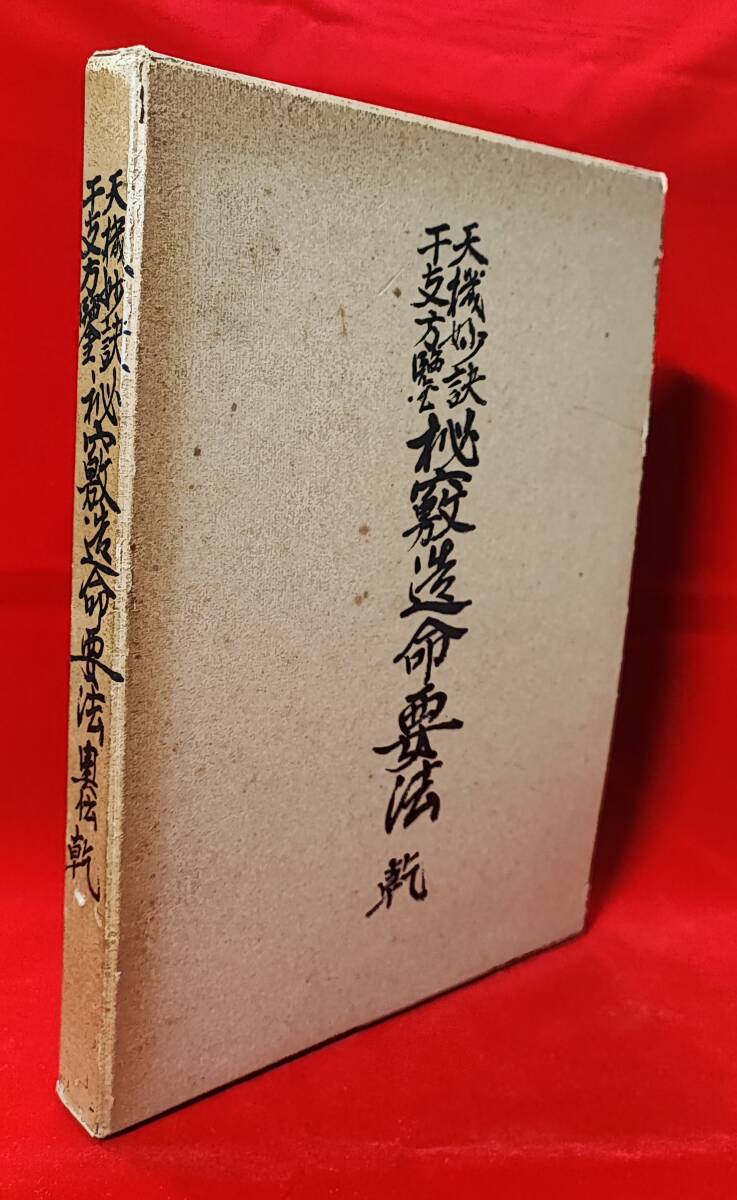 天機妙訣
干支方鑒
秘竅造命要法 乾
天機妙訣
干支方鑒
秘竅造命要法 奥伝 乾